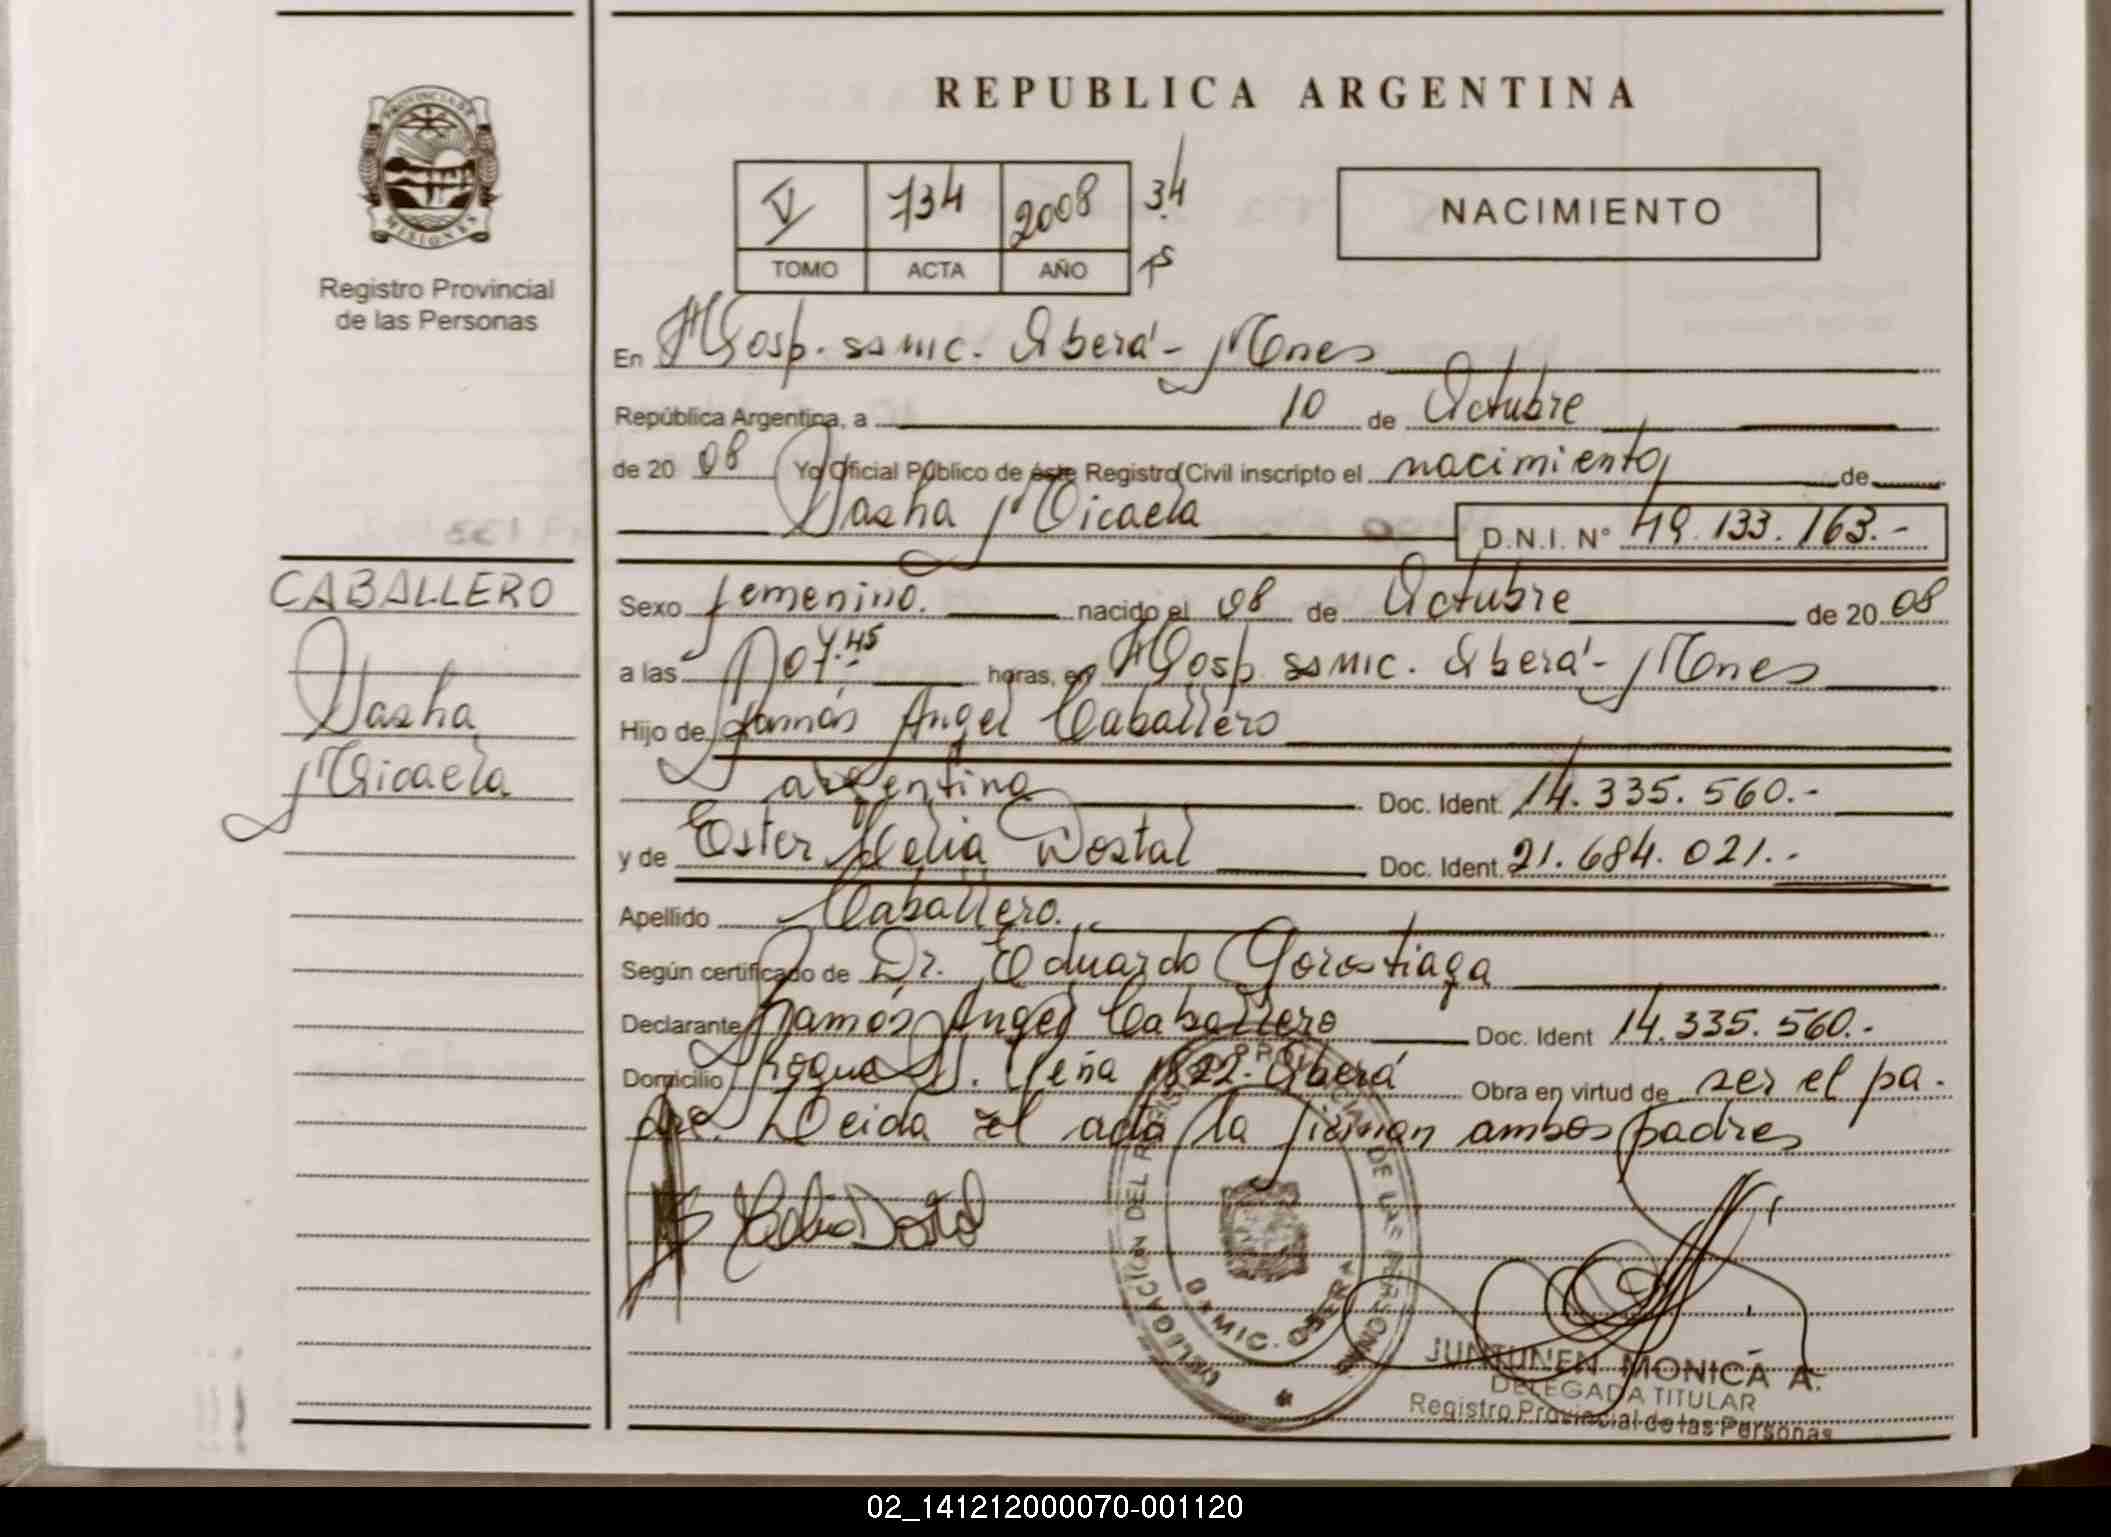 REPUBLICA ARGENTINA
PROVINCIA DE
MISIONES
Registro Provincial
de las Personas
V 734 2008 34
TOMO ACTA AÑO
NACIMIENTO
En Hosp. samic. Oberá - Mnes
República Argentina, a 10 de Octubre
de 20 08 Yo Oficial Público de éste Registro Civil inscripto el nacimiento de
Sasha Micaela D.N.I. N° 49.133.163.-
CABALLERO
Sasha
Micaela
Sexo femenino. nacido el 08 de Octubre de 20 08
a las 07.45 horas, en Hosp. samic. Oberá - Mnes
Hijo de Ramón Angel Caballero
argentino Doc. Ident. 14.335.560.-
y de Ester Delia Dostal Doc. Ident. 21.684.021.-
Apellido Caballero.
Según certificado de Dr. Eduardo Gorostiaga
Declarante Ramón Angel Caballero Doc. Ident 14.335.560.-
Domicilio Roque S. Peña 1822- Oberá Obra en virtud de ser el pa-
dre. Leida el acta la firman ambos padres
DELEGACION DEL REGISTRO PROVINCIAL DE LAS PERSONAS
OBERA
JUNTUNEN MONICA A.
DELEGADA TITULAR
Registro Provincial de las Personas
02_141212000070-001120